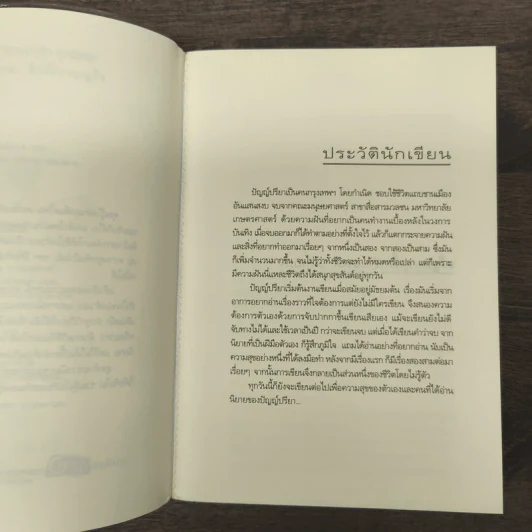 ประวัตินักเขียน
ปัญญ์ปรียาเป็นคนกรุงเทพฯ โดยกำเนิด ชอบใช้ชีวิตแถบชานเมือง
อันแสนสงบ จบจากคณะมนุษยศาสตร์ สาขาสื่อสารมวลชน มหาวิทยาลัย
เกษตรศาสตร์ ด้วยความฝันที่อยากเป็นคนทำงานเบื้องหลังในวงการ
บันเทิง เมื่อจบออกมาก็ได้ทำตามอย่างที่ตั้งใจไว้ แล้วก็แตกกระจายความฝัน
และสิ่งที่อยากทำออกมาเรื่อยๆ จากหนึ่งเป็นสอง จากสองเป็นสาม ซึ่งมัน
ก็เพิ่มจำนวนมากขึ้น จนไม่รู้ว่าทั้งชีวิตจะทำได้หมดหรือเปล่า แต่ก็เพราะ
มีความฝันนี่แหละชีวิตถึงได้สนุกสุขสันต์อยู่ทุกวัน
ปัญญ์ปรียาเริ่มต้นงานเขียนเมื่อสมัยอยู่มัธยมต้น เรื่องมันเริ่มจาก
อาการอยากอ่านเรื่องราวที่ใจต้องการแต่ยังไม่มีใครเขียน จึงสนองความ
ต้องการตัวเองด้วยการจับปากกาขึ้นเขียนเสียเอง แม้จะเขียนยังไม่ดี
จับทางไม่ได้และใช้เวลาเป็นปี กว่าจะเขียนจบ แต่เมื่อได้เขียนคำว่าจบ จาก
นิยายที่เป็นฝีมือตัวเอง ก็รู้สึกภูมิใจ แถมได้อ่านอย่างที่อยากอ่าน นับเป็น
ความสุขอย่างหนึ่งที่ได้ลงมือทำ หลังจากมีเรื่องแรก ก็มีเรื่องสองสามต่อมา
เรื่อยๆ จากนั้นการเขียนจึงกลายเป็นส่วนหนึ่งของชีวิตโดยไม่รู้ตัว
ทุกวันนี้ก็ยังจะเขียนต่อไปเพื่อความสุขของตัวเองและคนที่ได้อ่าน
นิยายของปัญญ์ปรียา...